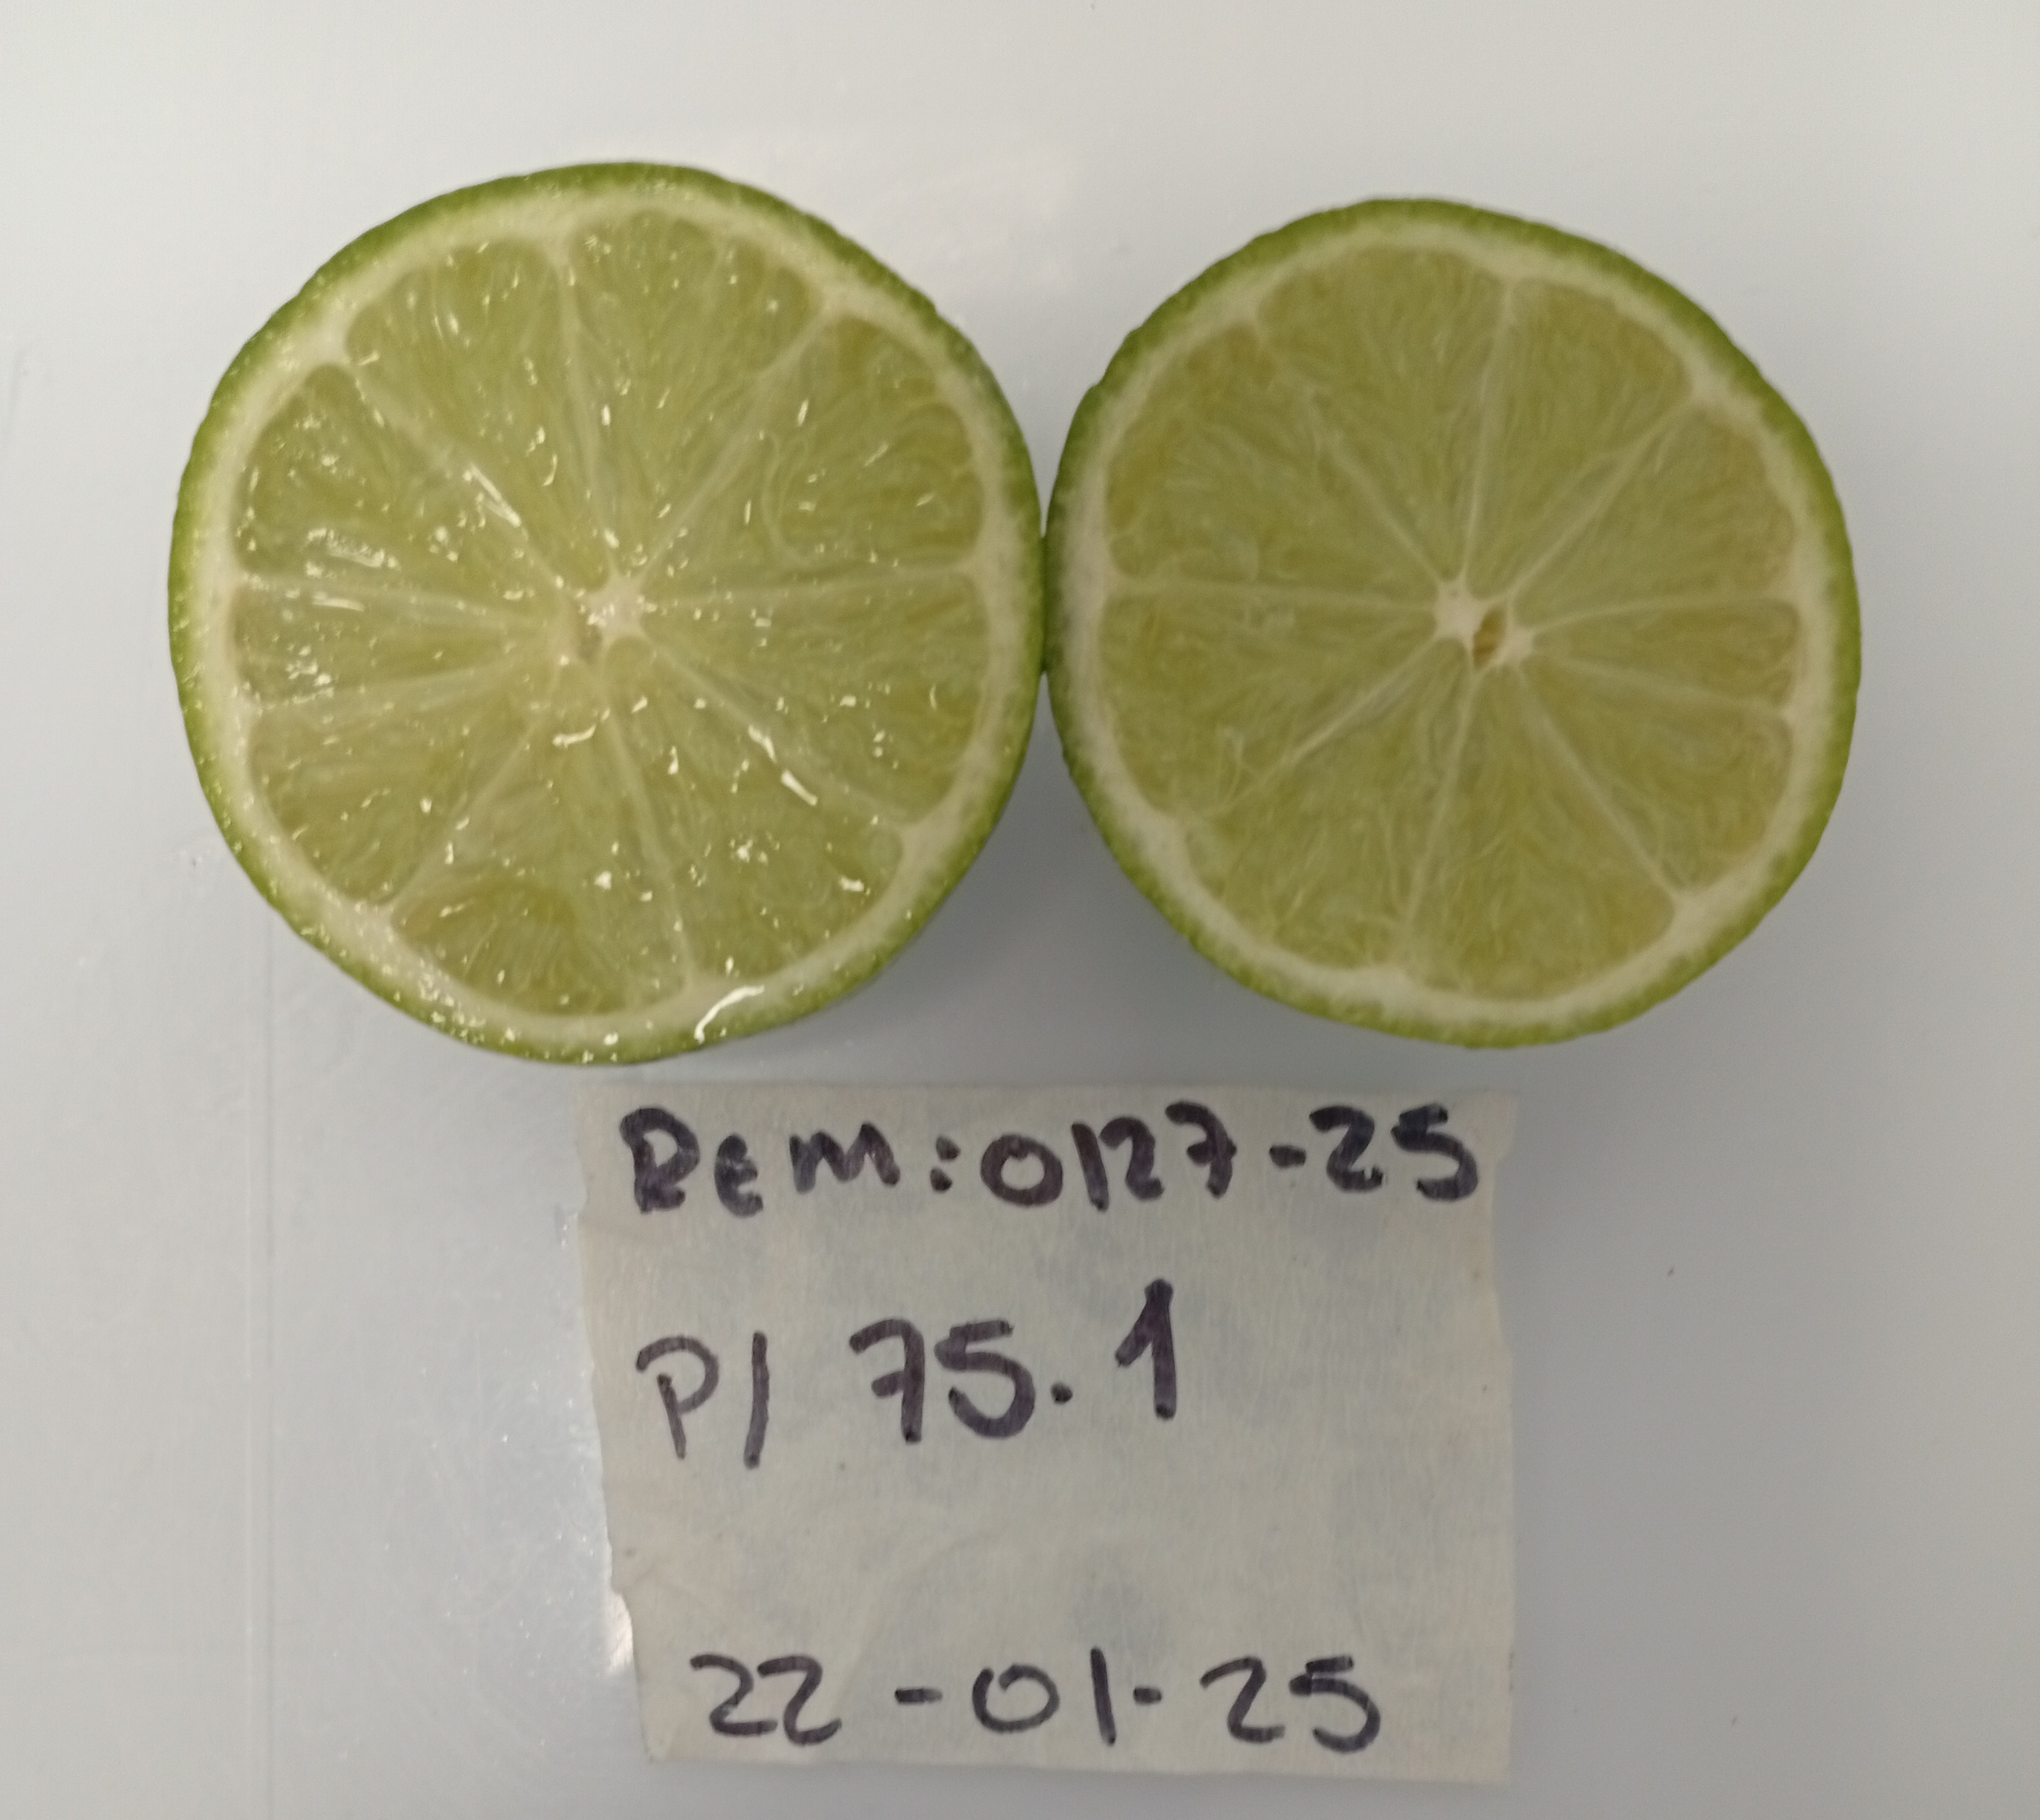 Rem: 0127-25
P/ 75.1
22-01-25